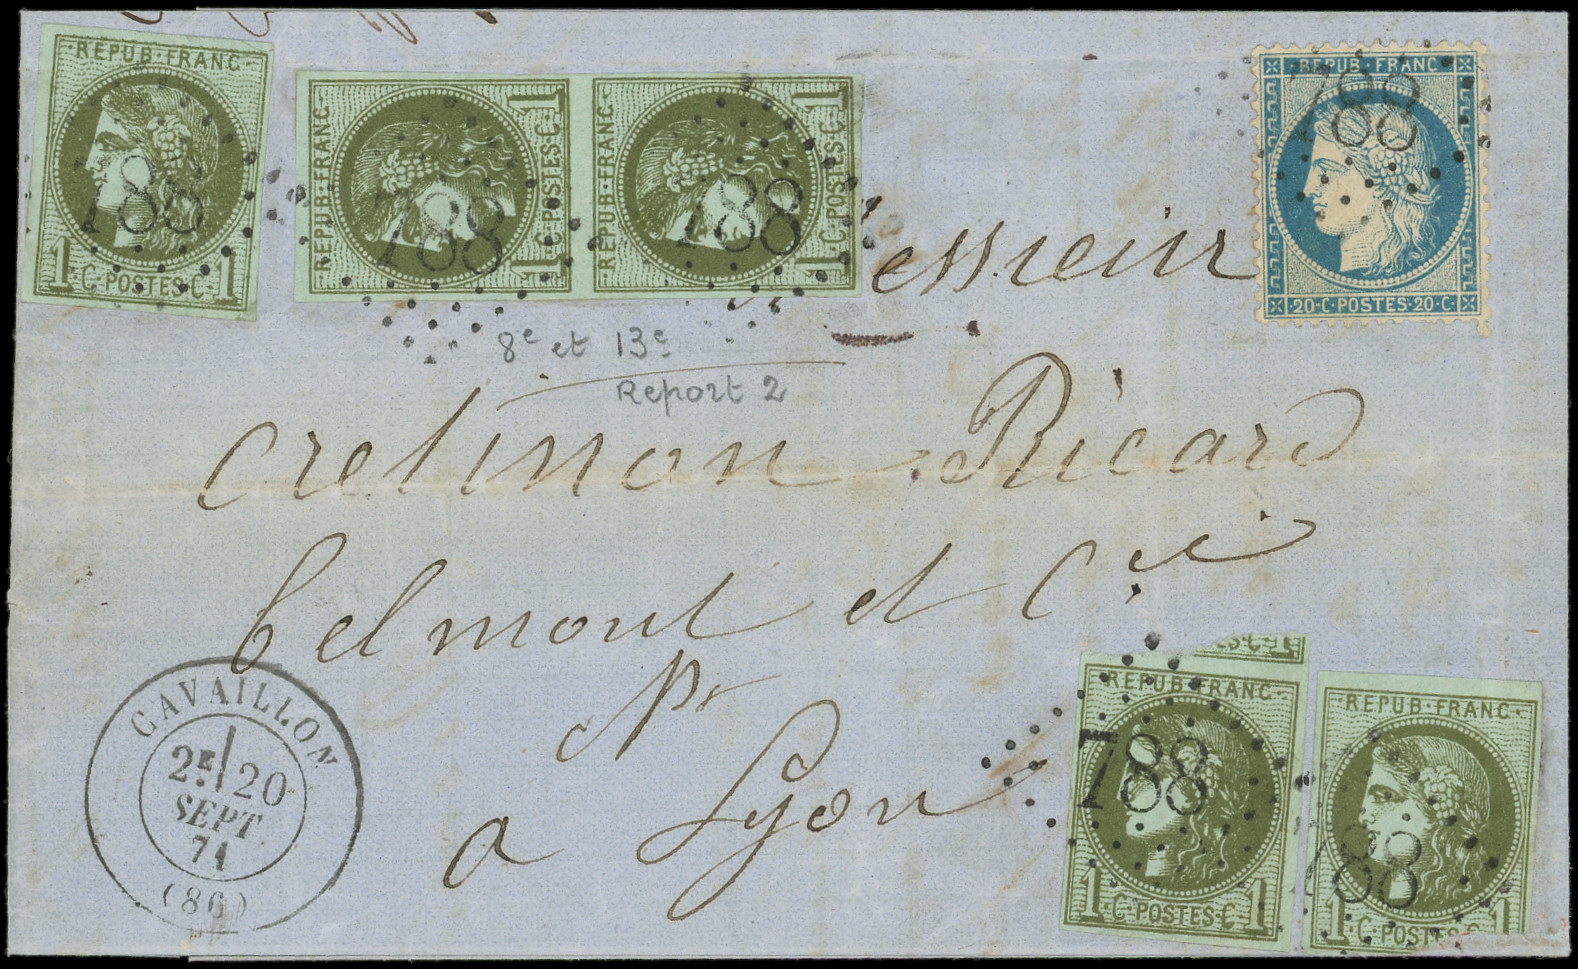 REPUB·FRANC
788
1 C·POSTES·C 1
REPUB·FRANC
1 C·POSTES·C 1
788
REPUB·FRANC
1 C·POSTES·C 1
788
REPUB·FRANC
788
20·C·POSTES·20·C
Messieur
8e et 13e
Report 2
Cretinon Ricard
Belmont et Cie
Nts
a Lyon
CAVAILLON
2E 20
SEPT
71
(86)
REPUB·FRANC
788
1 C·POSTES·C 1
REPUB·FRANC
788
1 C·POSTES·C 1